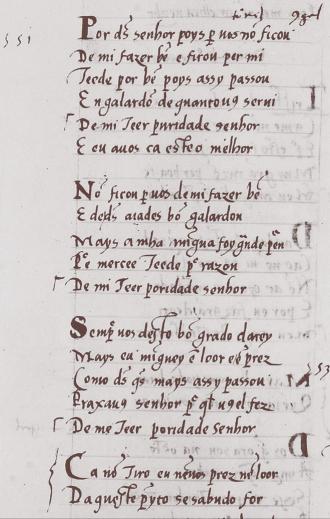 551
Por ds senhor poys p uos nō ficou
De mi fazer bē e ficou per mi
Teede por bē poys assy passou
En galardō de quantoug serui
De mi teer puridade senhor
E eu auos ca esteo milhor
Nō ficou p uos de mi fazer bē
E de ds aiades bō galardon
Mays a mha migua foy gnde pen
E mercee teede pr razon
De mi teer poridade senhor
Semp uos desto bō grado darey
Mays eu minguey ē loor e ē prez
Como ds qs mays assy passou
senhor pr
De me teer poridade senhor
Ca nō tiro eu nē uos prez nē loor
Daqueste pyto se sabudo for